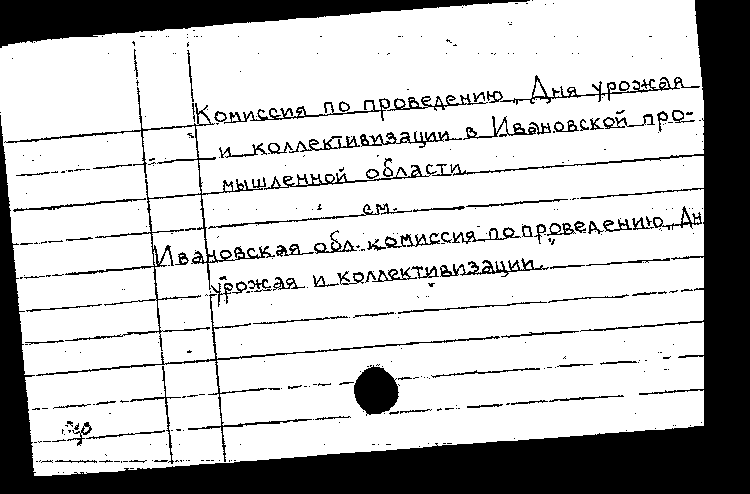 Комиссия по проведению „Дня урожая
и коллективизации в Ивановской про-
мышленной области.
см.
Ивановская обл. комиссия по проведению „Дн
урожая и коллективизации.